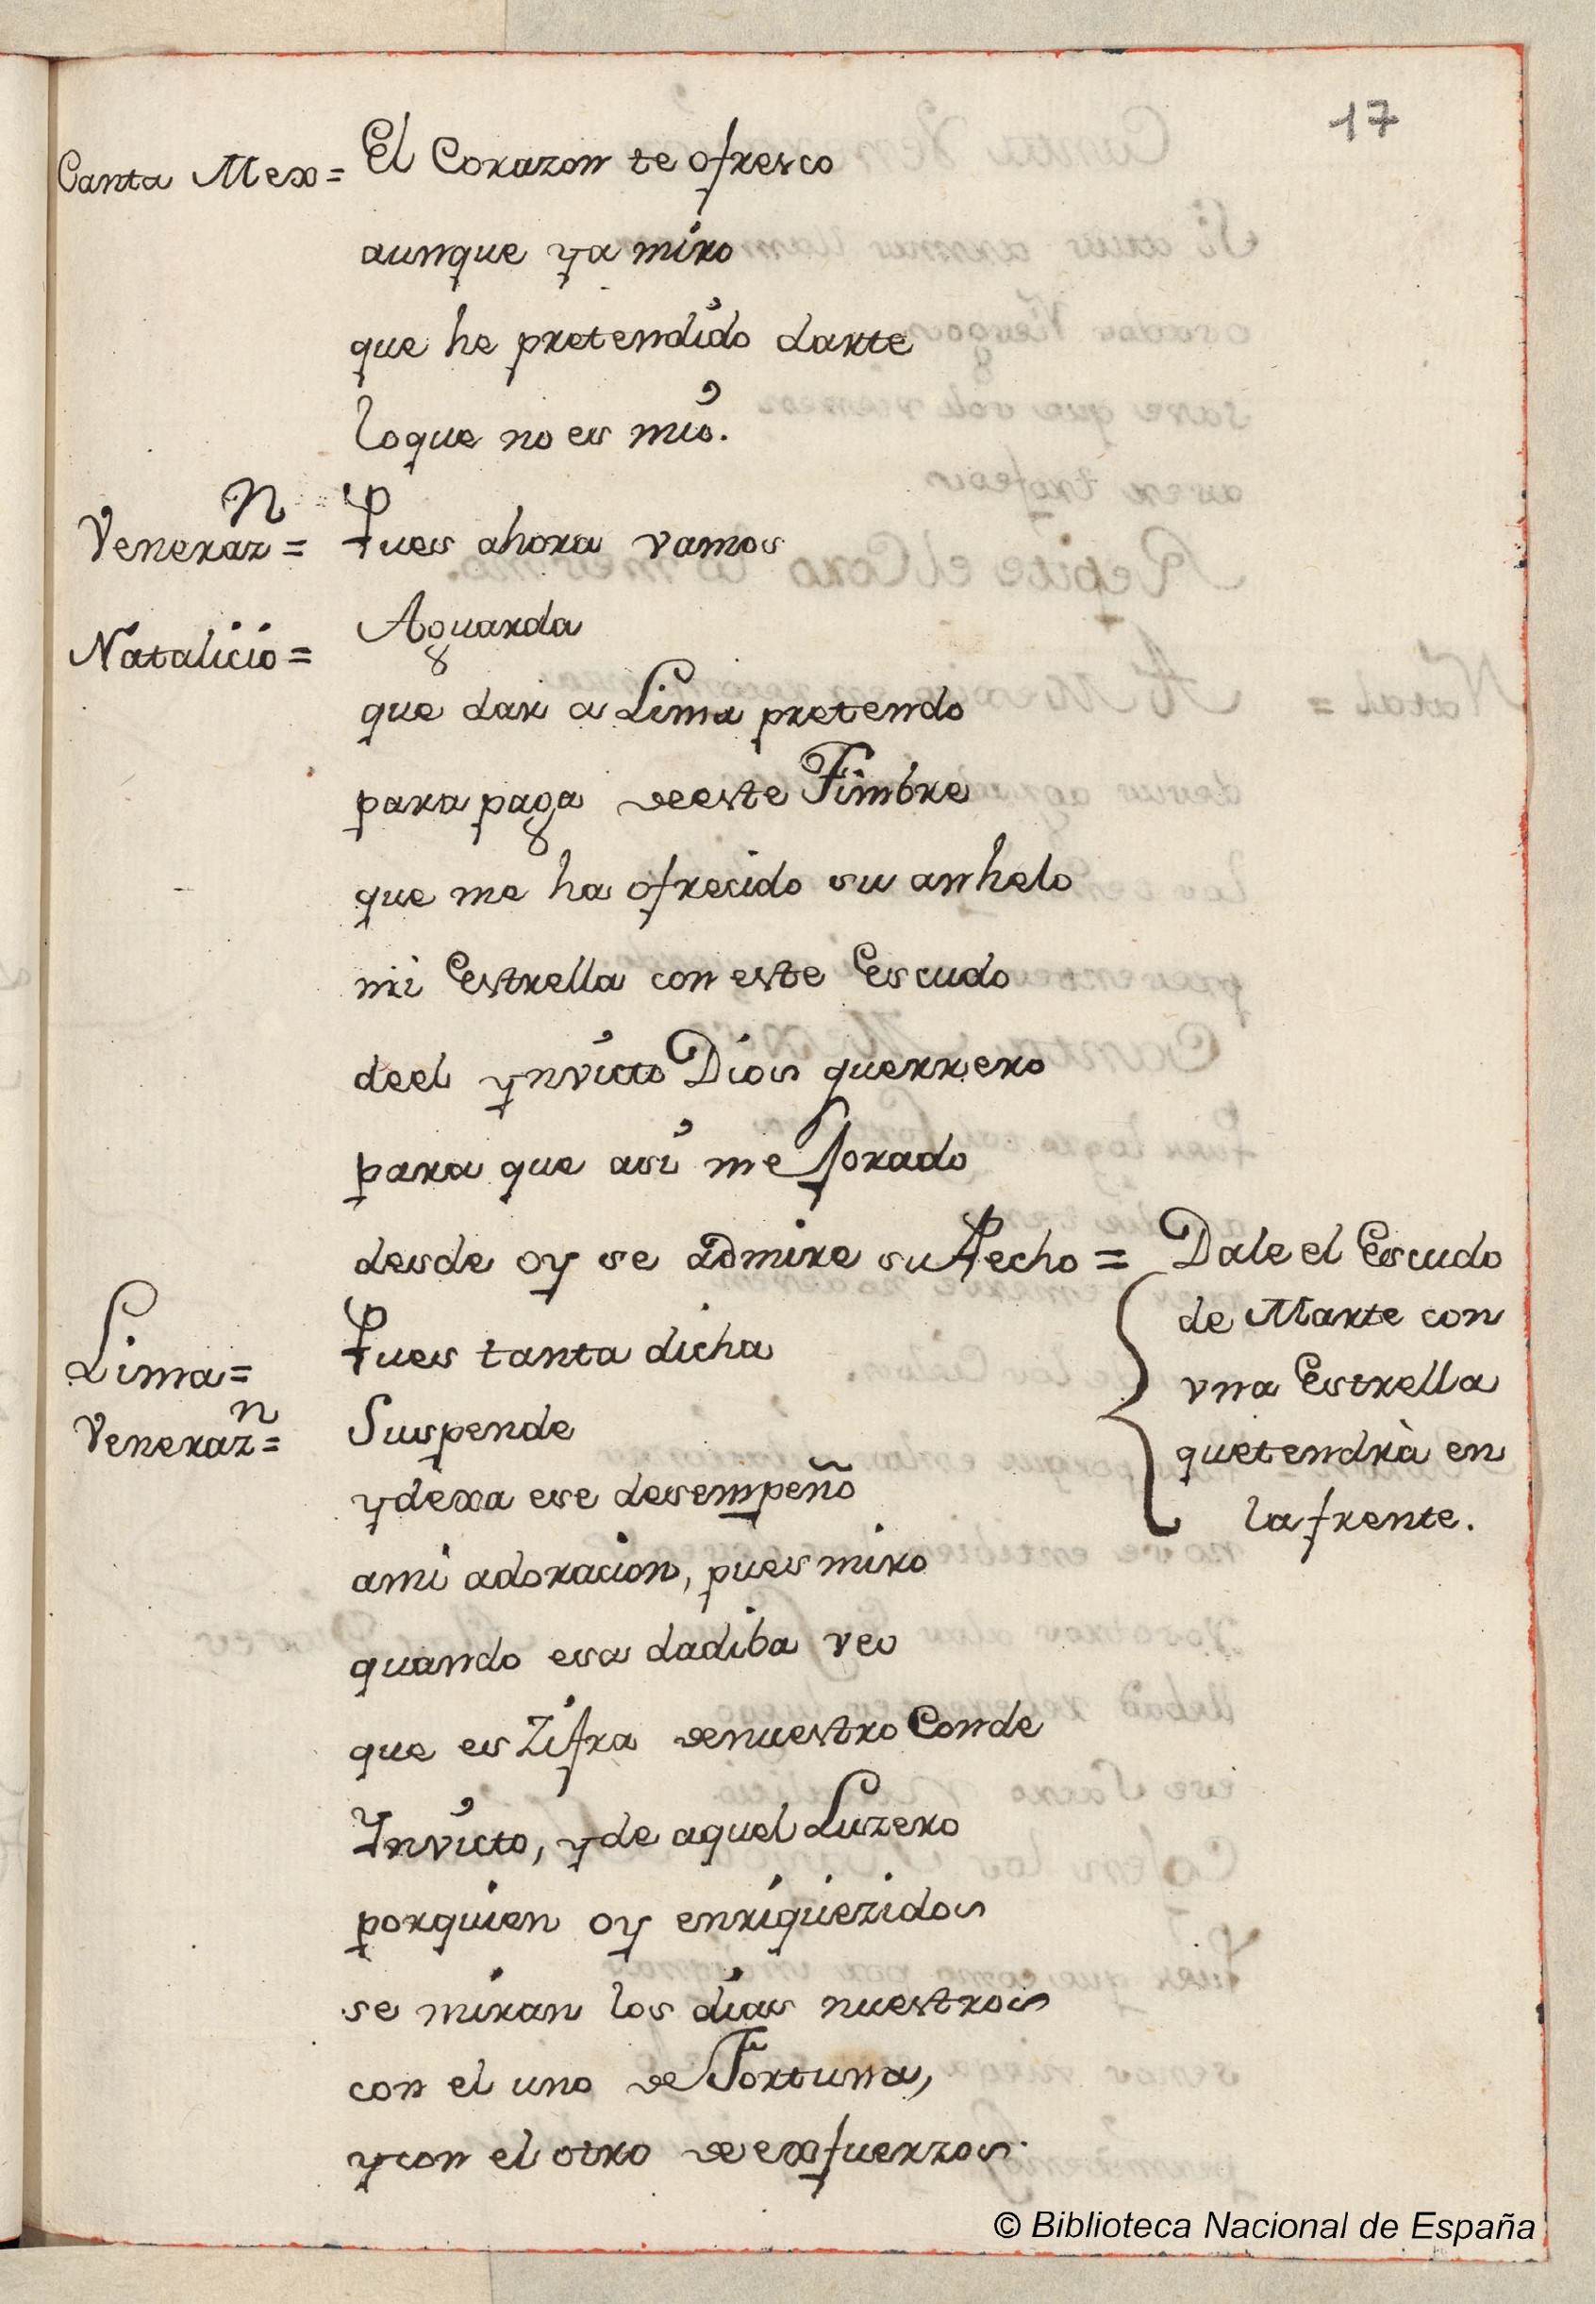 17
Canta Mex= El Corazon te ofresco
aunque ya miro
que he pretendido darte
loque no es mio.
Veneraz.n= Pues ahora vamos
Natalicio= Aguarda
que dar a Lima pretendo
para paga de este Timbre
que me ha ofrecido su anhelo
mi Estrella con este Escudo
deel ynvicto Dios guerrero
para que asi me Jorado
desde oy se admire su Pecho = Dale el Escudo
de Marte con
vna Estrella
quetendrà en
la frente.
Lima= Pues tanta dicha
Veneraz.n= Suspende
ydexa ese desempeño
ami adoracion, pues miro
quando esa dadiba veo
que es Zifra denuestro Conde
Ynvicto, y de aquel Luzero
porquien oy enriqüezidos
se miran los dias nuestros
con el uno de Fortuna,
ycon el otro de exfuerzos.
© Biblioteca Nacional de España